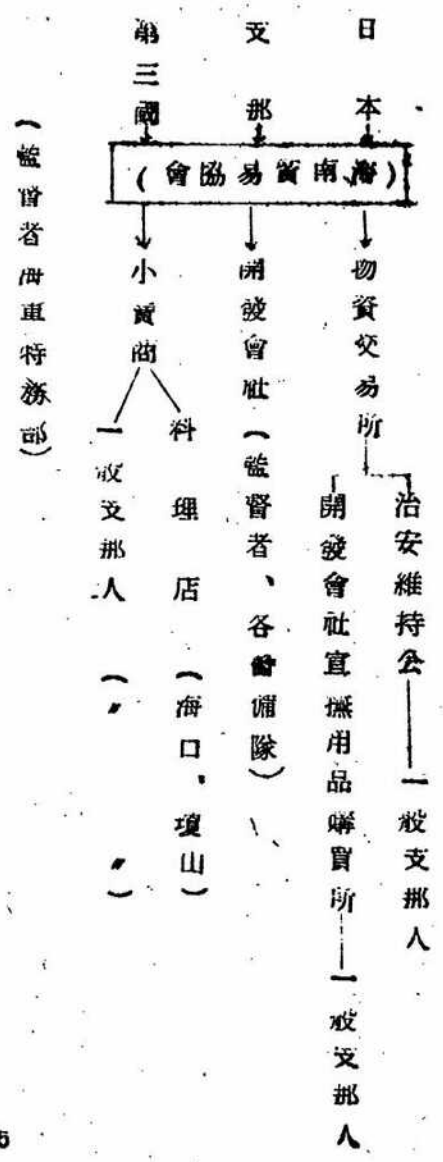 日本
支那
第三國
(海南貿易協會)
物資交易所
治安維持公
一般支那人
開發會社宣撫用品購買所
一般支那人
開發會社(監督者、各警備隊)
小賣商
料理店(海口、瓊山)
一般支那人(〃 〃)
(監督者海軍特務部)
5